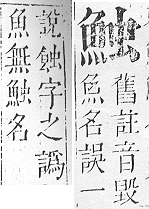 舊註音毀
魚名誤一
說蝕字之譌
魚無名